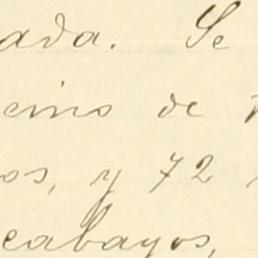 ada. Se
eino de
os, y 72
cabayos,